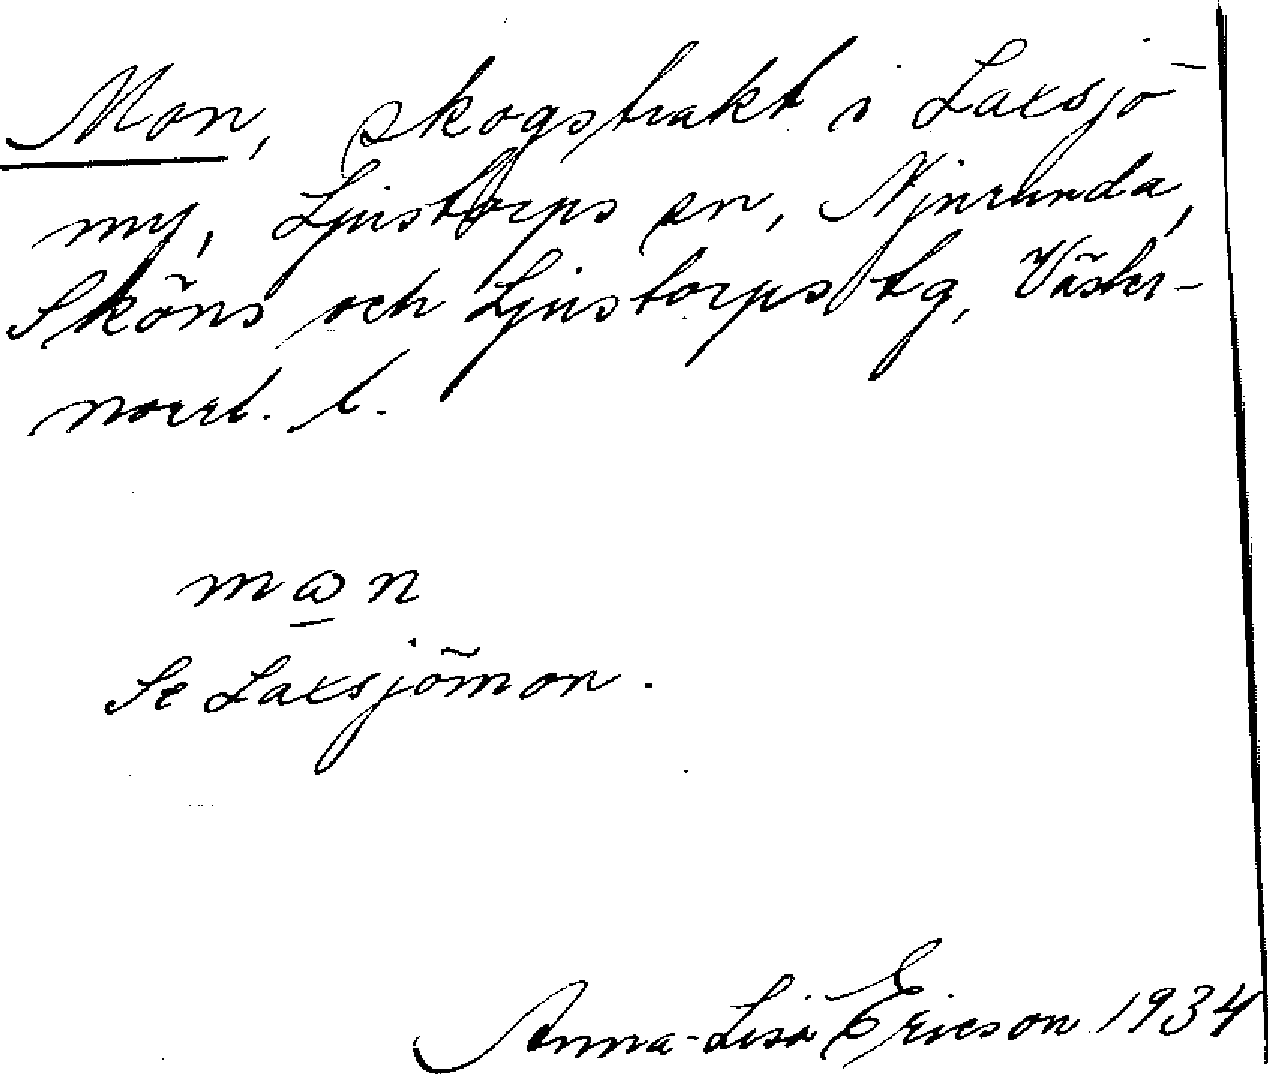 Mon, skogstrakt i Laxsjö
my, Ljustorps sn, Njurunda,
Sköns och Ljustorps tg, Väster-
norrl. l.
mωn
Se Laxsjömon.
Anna-Lisa Ericson 1934